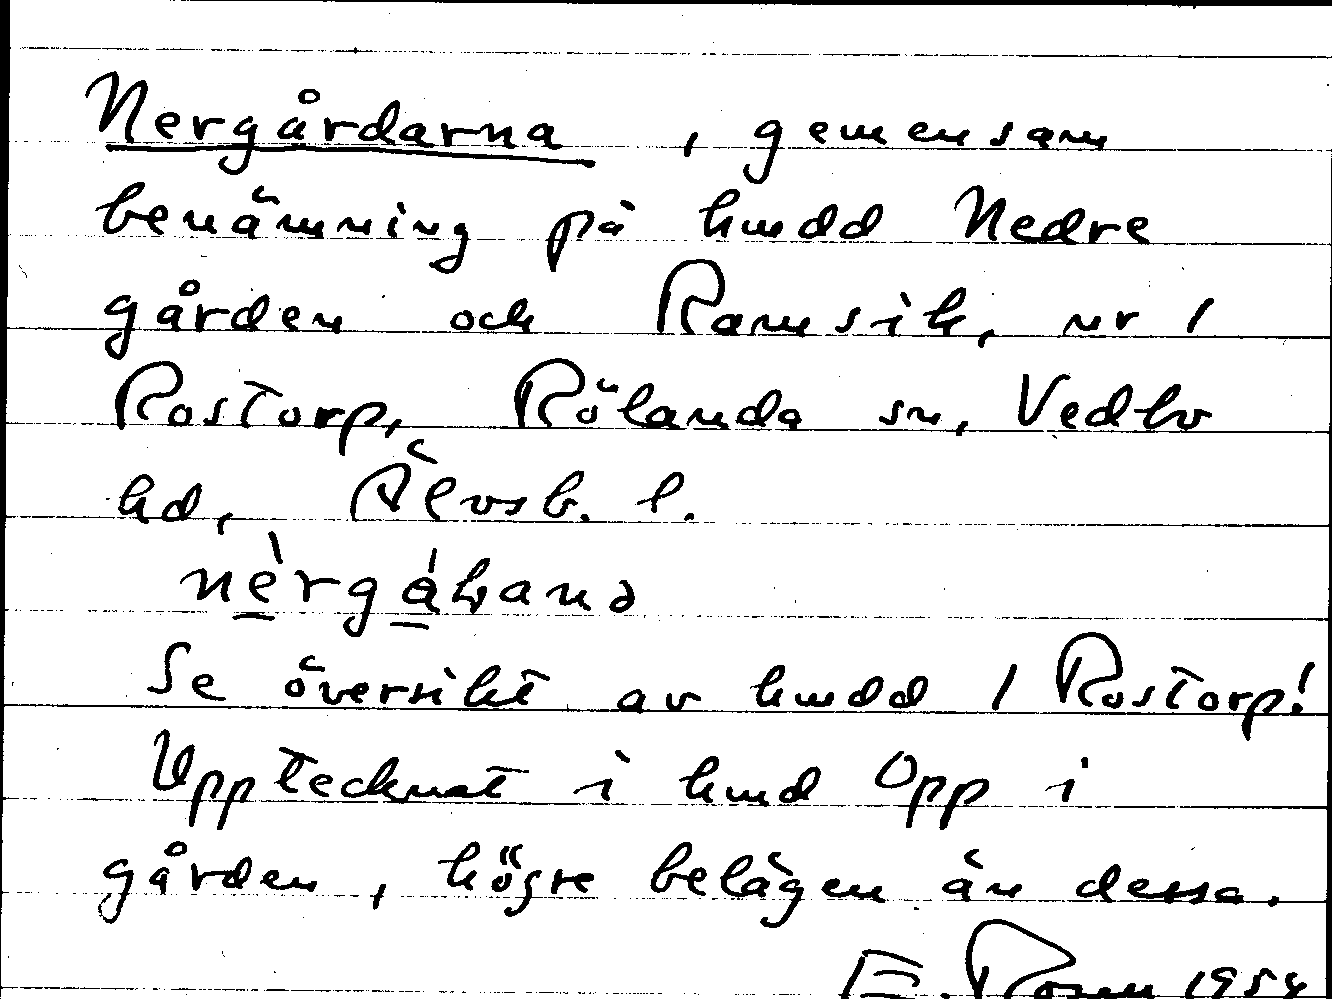 Nergårdarna, gemensam
benämning på hmdd Nedre
gården och Ramsik, nr 1
Rostorp, Rölanda sn, Vedbo
hd, Älvsb. l.
Se översikt av hmdd 1 Rostorp!
Upptecknat i hmd Opp i
gården, högre belägen än dessa.
E. Rosen 1954